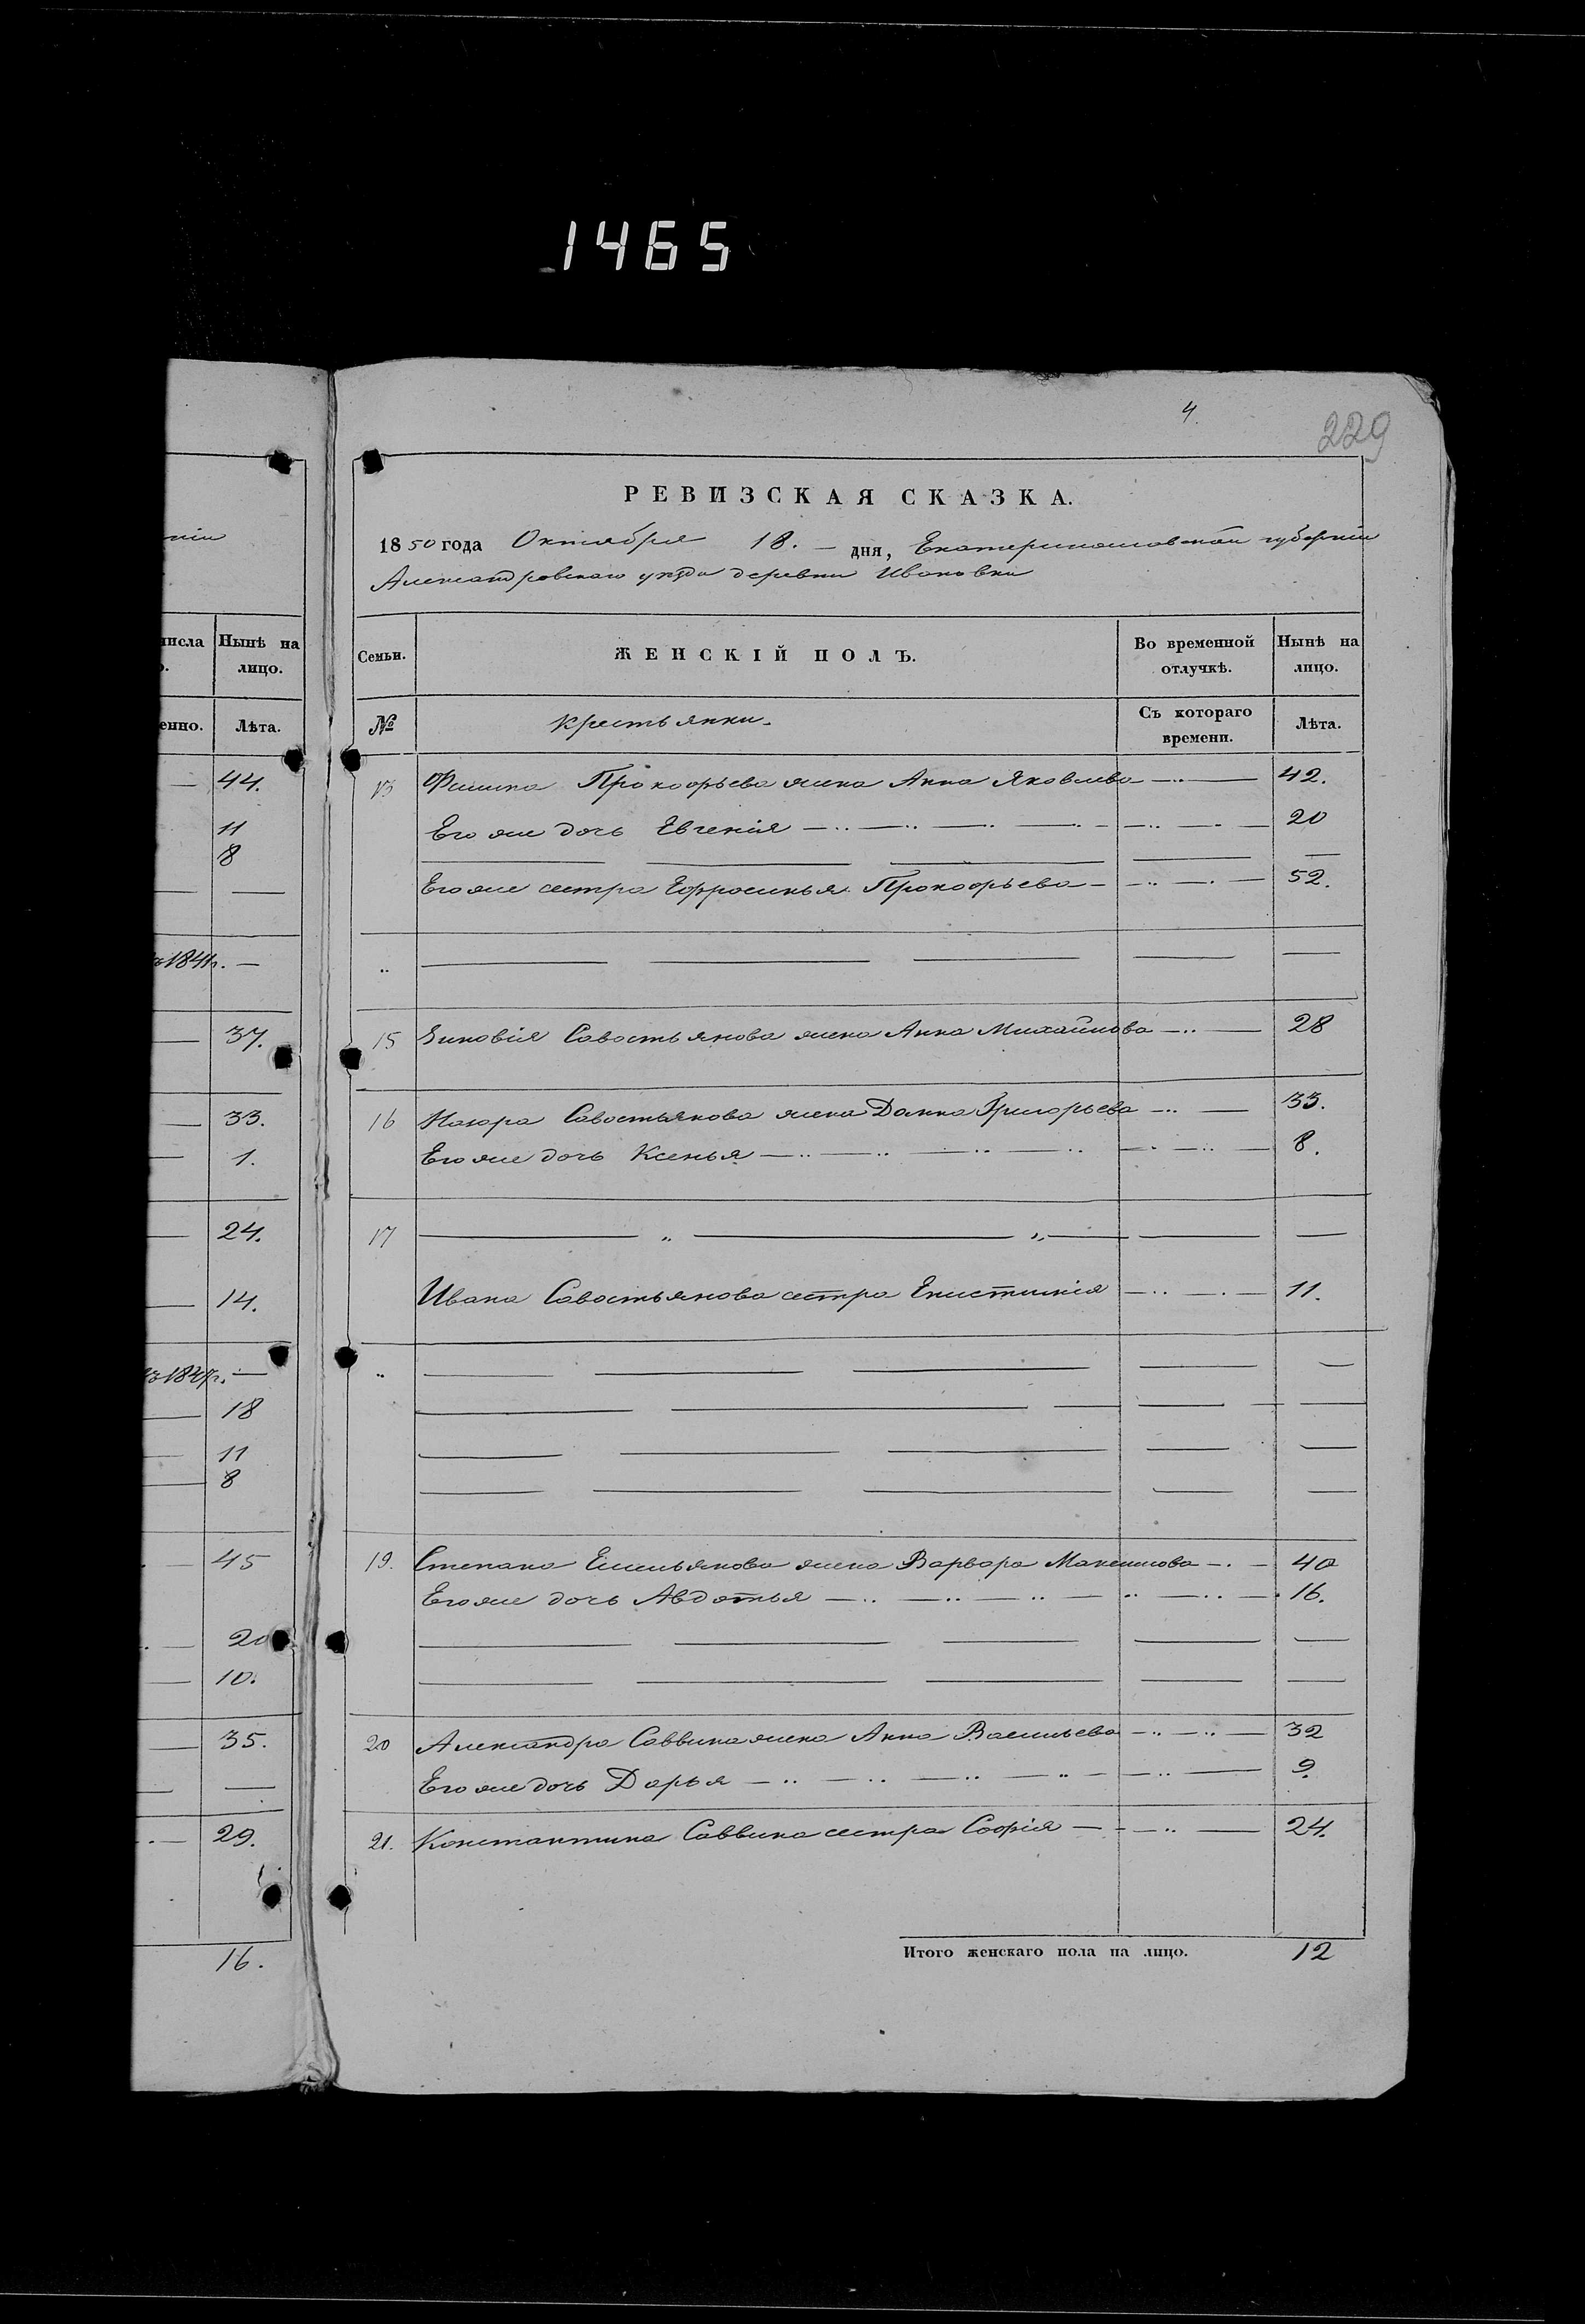 1465
4.
229
РЕВИЗСКАЯ СКАЗКА.
1850 года Октября 18. — дня, Екатеринославской губернии
Александровскаго уезда деревни Ивановки
нiи
числа Нынѣ на
лицо.
енно. Лѣта.
44.
11
8
1841г. —
37.
33.
1.
24.
14.
18
11
8
45
20
10.
35.
29.
16.
Семьи. ЖЕНСКIЙ ПОЛЪ. Во временной Нынѣ на
отлучкѣ. лицо.
№ Крестьянки. Съ котораго Лѣта.
времени.
13 Филипа Прокофьева жена Анна Яковлева 42.
Его же дочь Евгенiя 20
Его же сестра Ефросинья Прокофьева 52.
15 Зиновiя Савостьянова жена Анна Михайлова 28
16 Савостьянова жена Домна Григорьева 33.
Его же дочь Ксенья 8.
17
Ивана Савостьянова сестра 11.
19. Степана Емельянова жена Варвара Максимова 40
Его же дочь Авдотья 16.
20 Александра Саввина жена Анна Васильева 32
Его же дочь Дарья 9.
21. Константина Саввина сестра Софiя 24.
Итого женскаго пола на лицо. 12